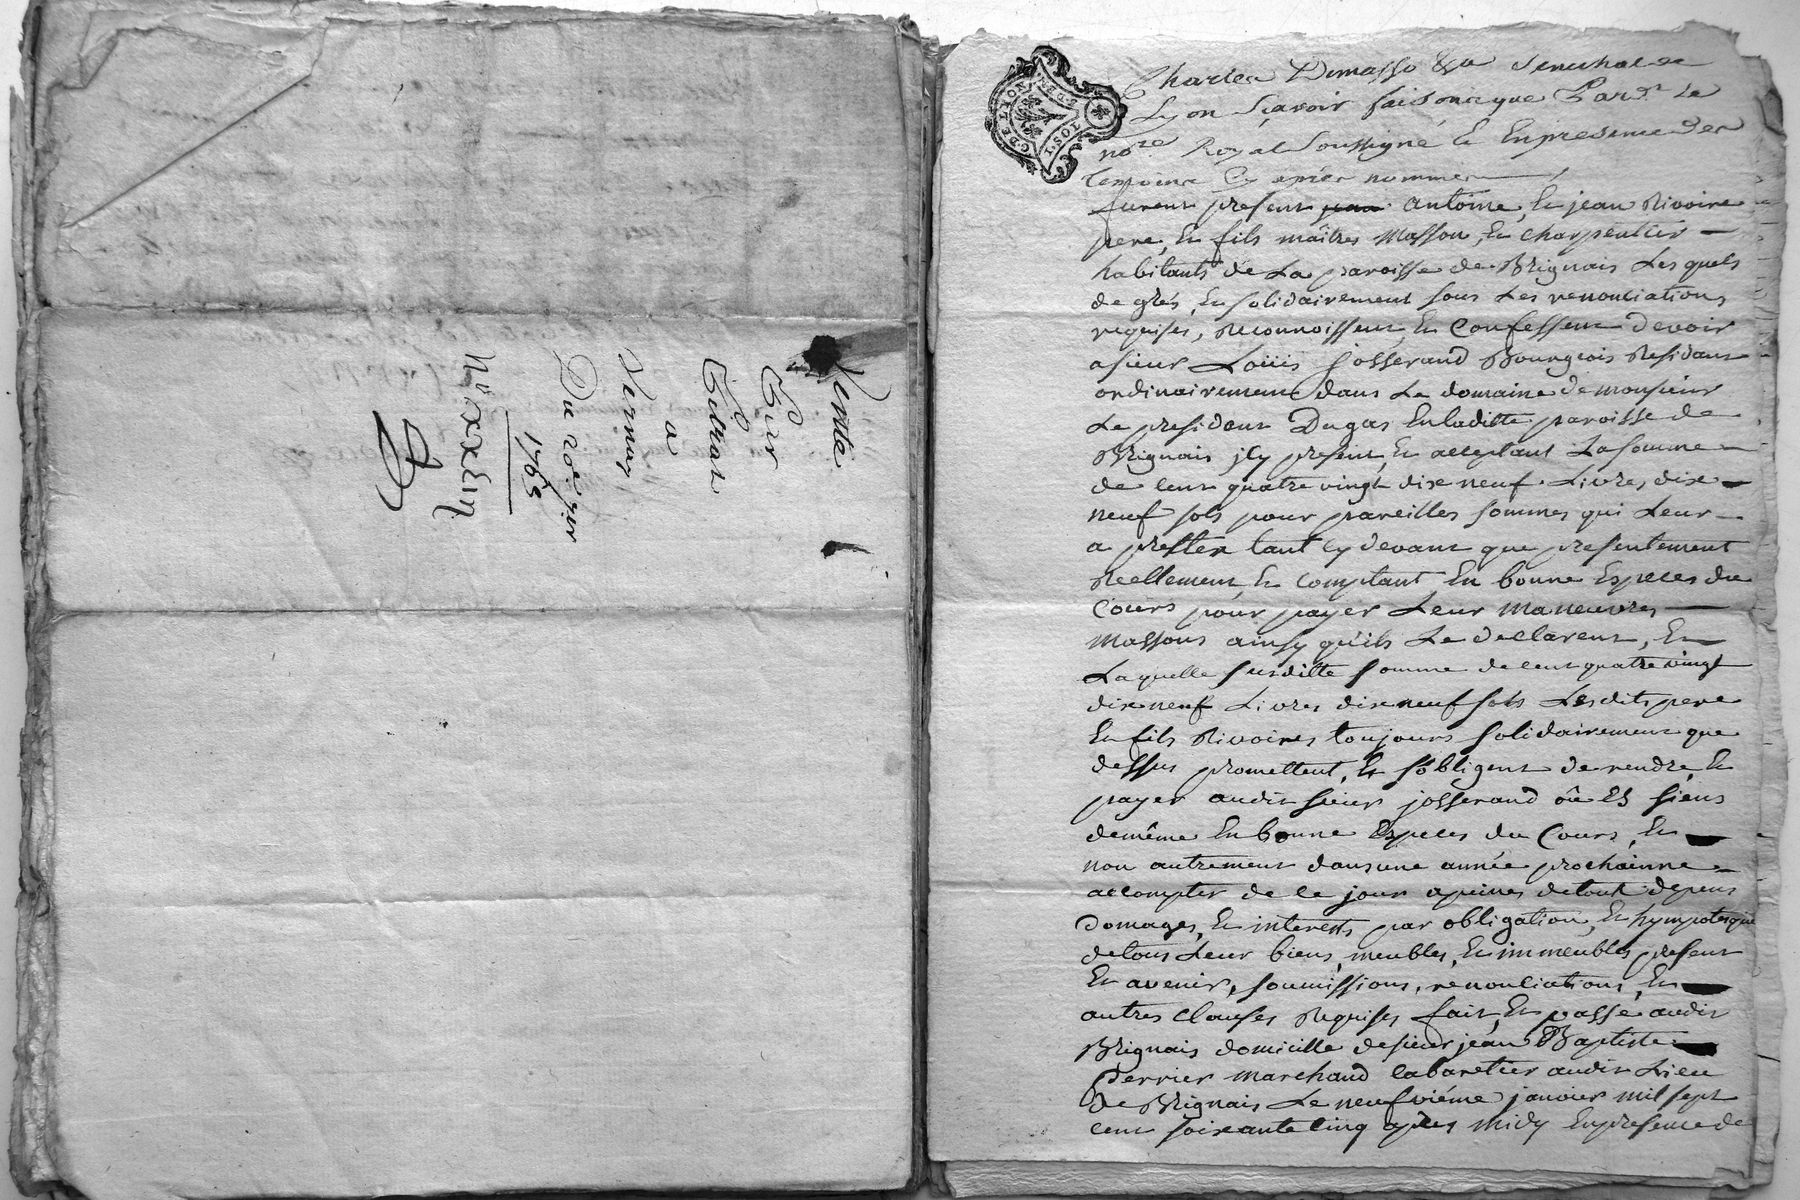 Vente
Pier
Pitrat
a
Vernay
Du 20e. Jer
1765
No. xxxiij
G. DE LYON
1. SOL
6. DEN.
Charles Demasso &a Senechal de
Lyon Sçavoir faisons que Pard.t le
no.re Royal Soussigné & En presence des
temoins Cy aprés nommes
furent present antoine, Et jean Rivoire
pere, Et fils maîtres Masson, Et Charpentier
habitants de La paroisse de Brignais Les quels
de grés, En solidairement sous Les renonciations
requises, Reconnoissent, Et Confessent devoir
a sieur Loüis Josserand Bourgeois Residant
ordinairement dans Le domaine de monsieur
Le president Dugas En laditte paroisse de
Brignais jly present, Et acceptant La somme
de cent quatre vingt dix neuf Livres, dix
neuf sols pour pareilles sommes qui Leur
a prester tant cy devant que presentement
Reellement, Et comptant En bonne Especes du
Cours pour payer Leur maneuvres
Massons ainsy quils Le declarent, Et
Laquelle susditte somme de cent quatre vingt
dix neuf Livres dix neuf sols Lesdits pere
Et fils Rivoires toujours solidairement que
dessus promettent, Et s'obligent de rendre, Et
payer audit sieur josserand oû Es siens
demême En bonne Especes du Cours, Et
non autrement dans une année prochainne
accompter de ce jour apeines de tout depens
domages, Et interests par obligation, Et hympoteque
de tous Leur biens, meubles, Et immeubles present
Et avenir, soumissions, renonciations, Et
autres Clauses Requises fait, Et passé audit
Brignais domicille de sieur jean Baptiste
Perrier marchand Cabaretier audit Lieu
de Brignais Le neufviéme janvier mil sept
cent soixante cinq aprés midy En presence de